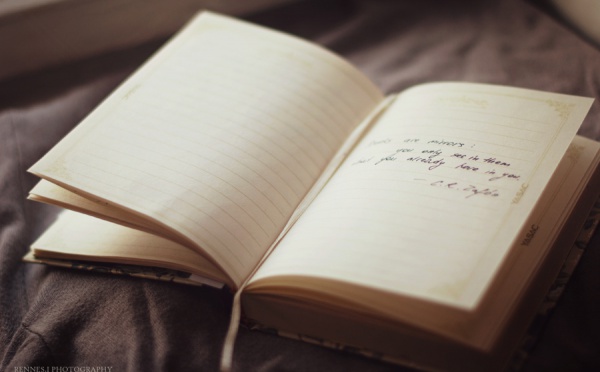 books are mirrors:
you only see in them
what you already have in you
- C.R. Zafón
RENNES.I PHOTOGRAPHY